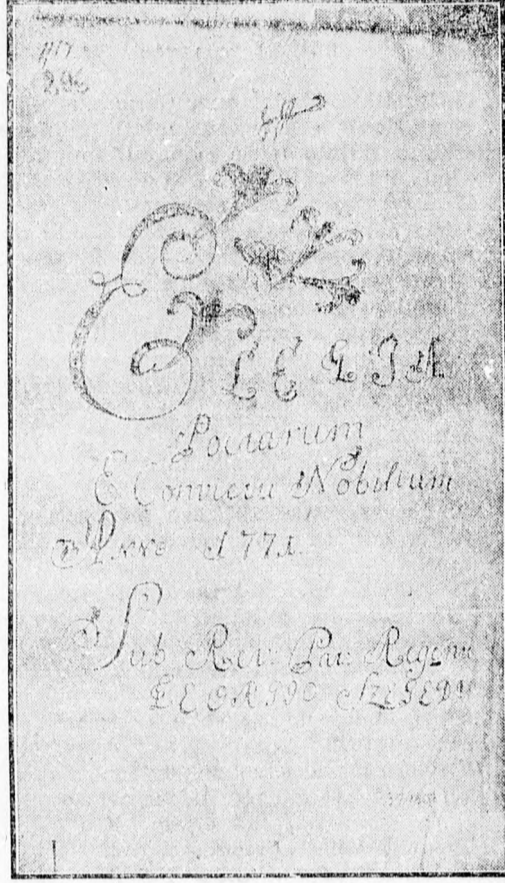 ELEGIA
Poetarum
E Convictu Nobilium
Anno 1771.
Sub Rev: Pat: Regente
GEORGIO SZEGEDI